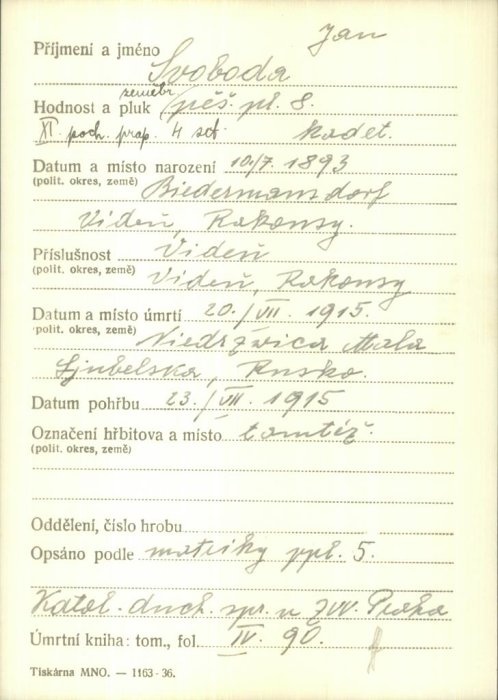 Jan
Příjmení a jméno Svoboda
zeměbr.
Hodnost a pluk pěš. pl. 8.
XI. poch. prap. 4 set. kadet.
Datum a místo narození 10./7. 1893
(polit. okres, země) Biedermansdorf
Videň, Rakousy.
Příslušnost Videň
(polit. okres, země) Videň, Rakousy
Datum a místo úmrtí 20./VII. 1915.
(polit. okres, země) Niedržvica Mala
Ljubelska, Rusko.
Datum pohřbu 23./VII. 1915
Označení hřbitova a místo tamtéž.
(polit. okres, země)
Oddělení, číslo hrobu
Opsáno podle matriky ppl. 5.
Katol. duch. spr. u ZVV. Praha
Úmrtní kniha: tom., fol. IV. 90.
Tiskárna MNO. — 1163-36.